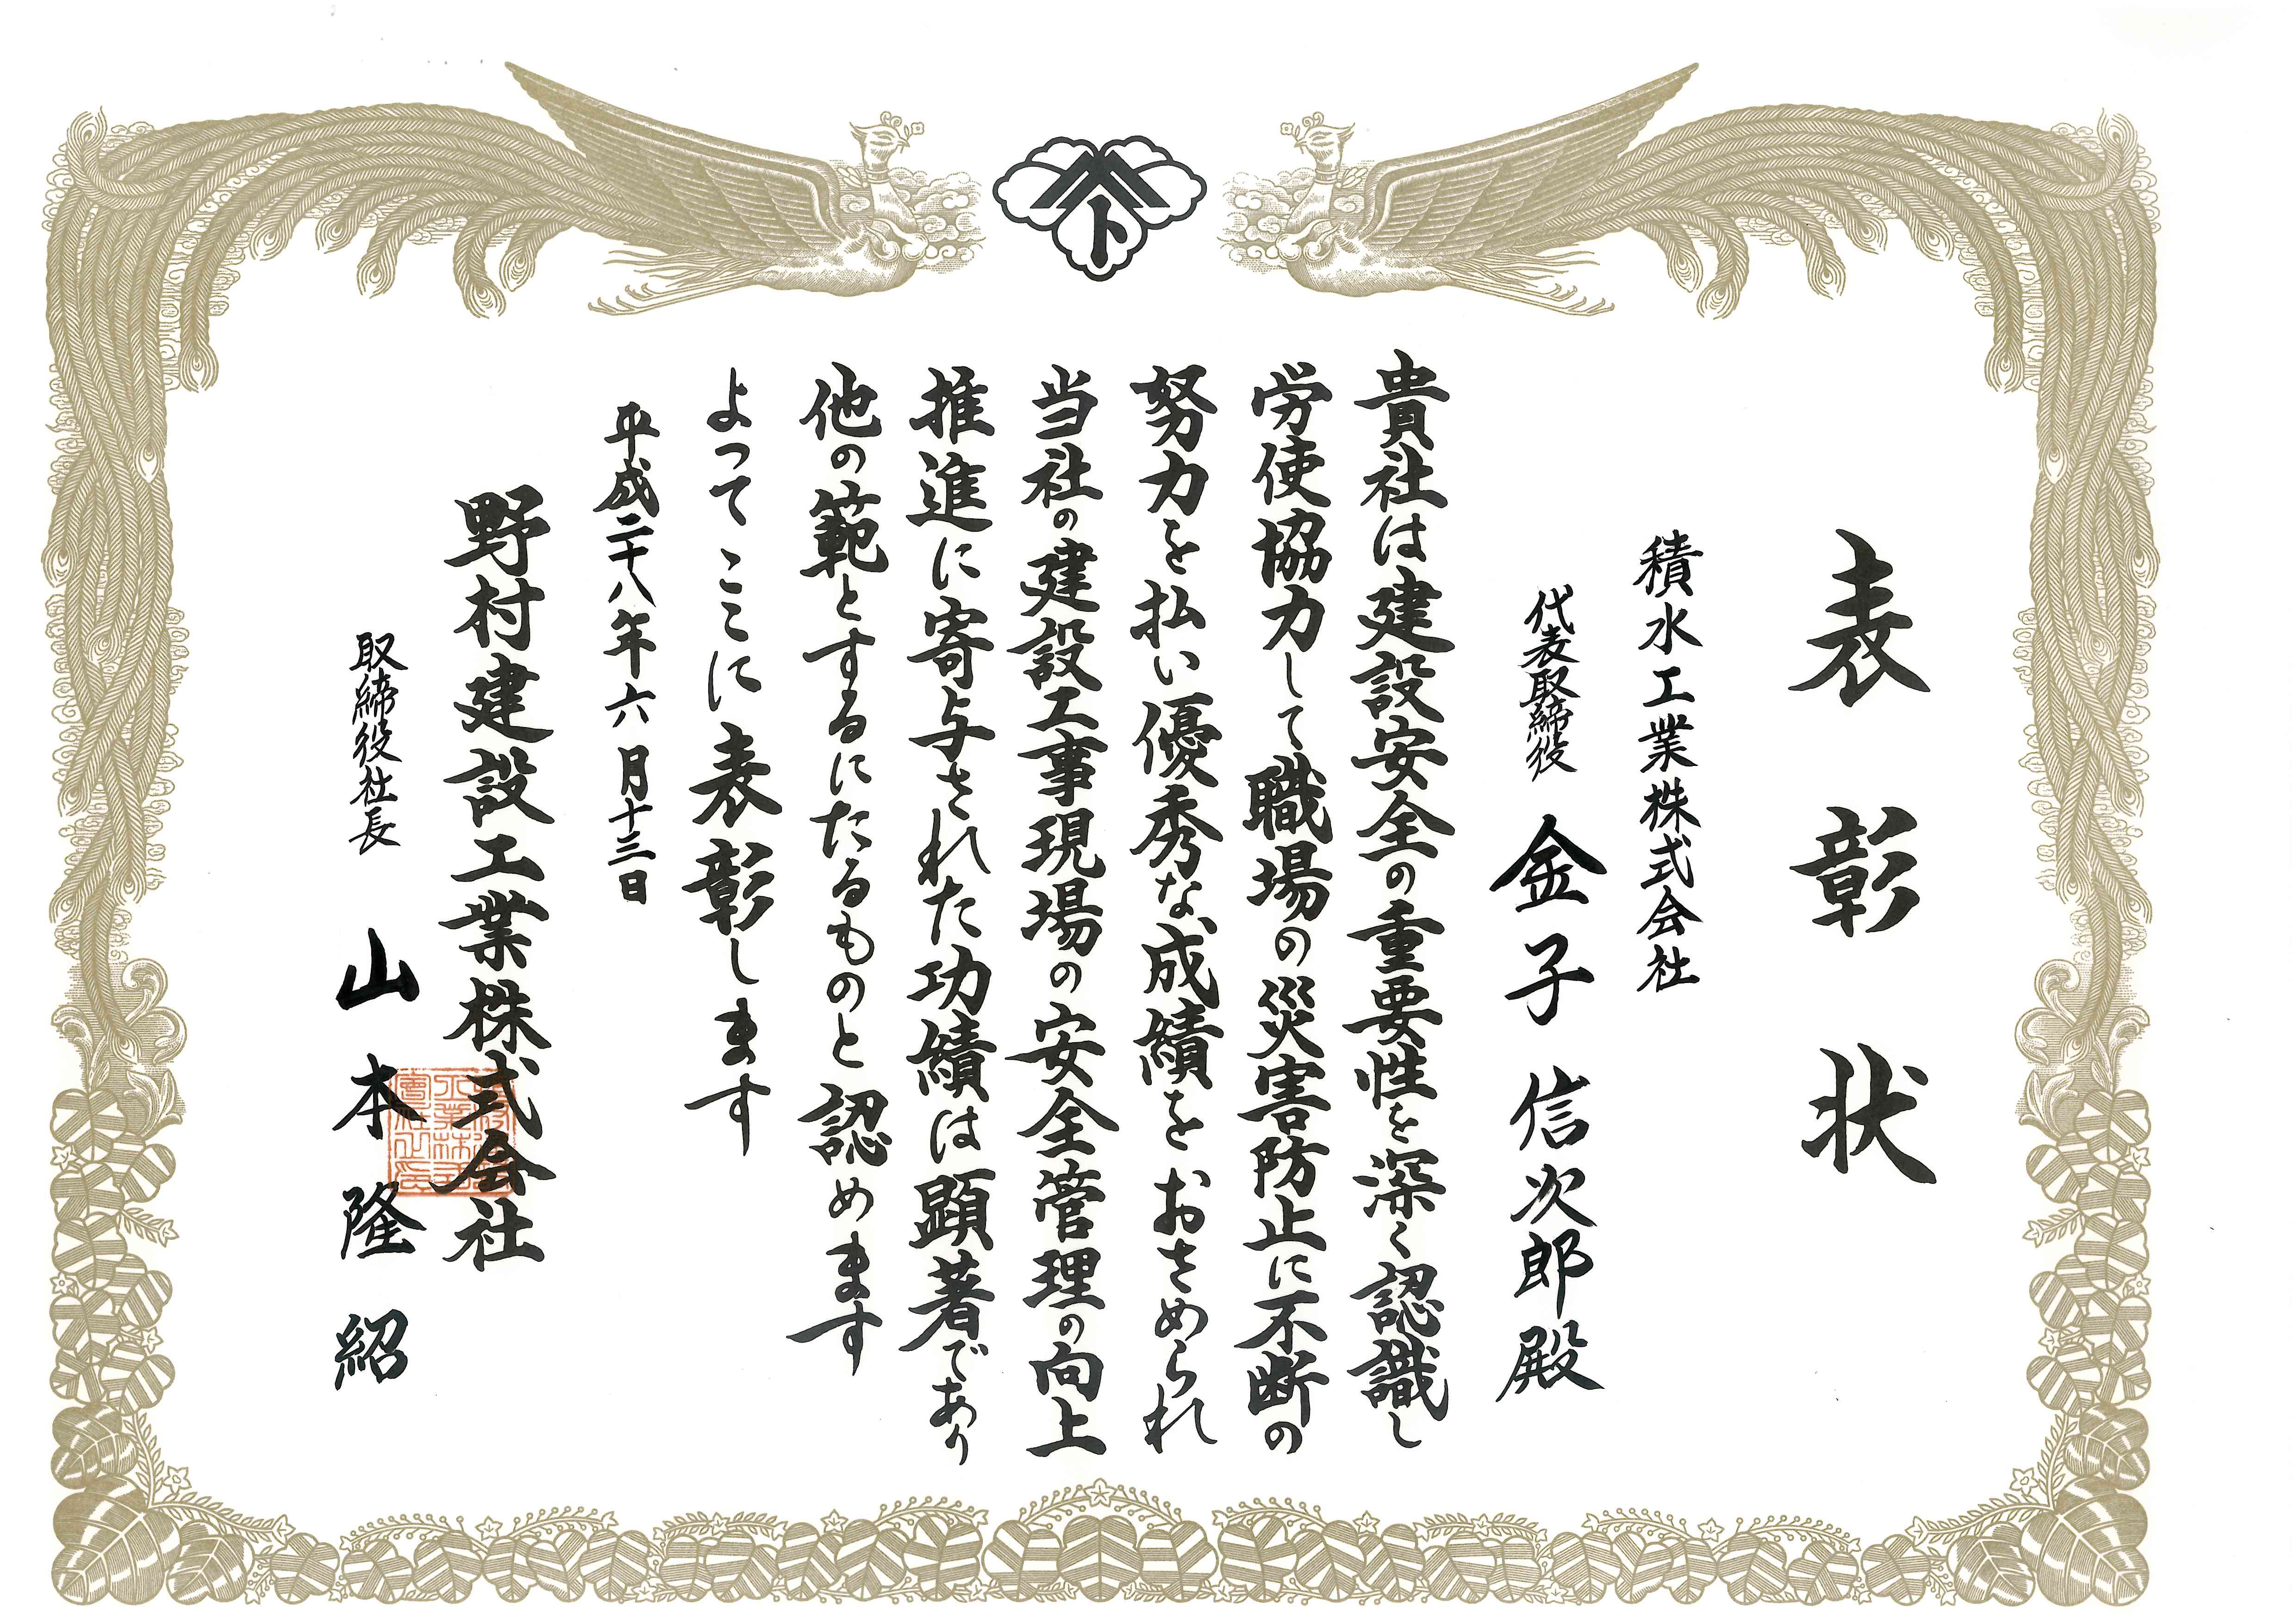 表彰状
積水工業株式会社
代表取締役 金子信次郎殿
貴社は建設安全の重要性を深く認識し
労使協力して職場の災害防止に不断の
努力を払い優秀な成績をおさめられ
当社の建設工事現場の安全管理の向上
推進に寄与された功績は顕著であり
他の範とするにたるものと認めます
よってここに表彰します
平成二十八年六月十三日
野村建設工業株式会社
取締役社長 山本隆紹